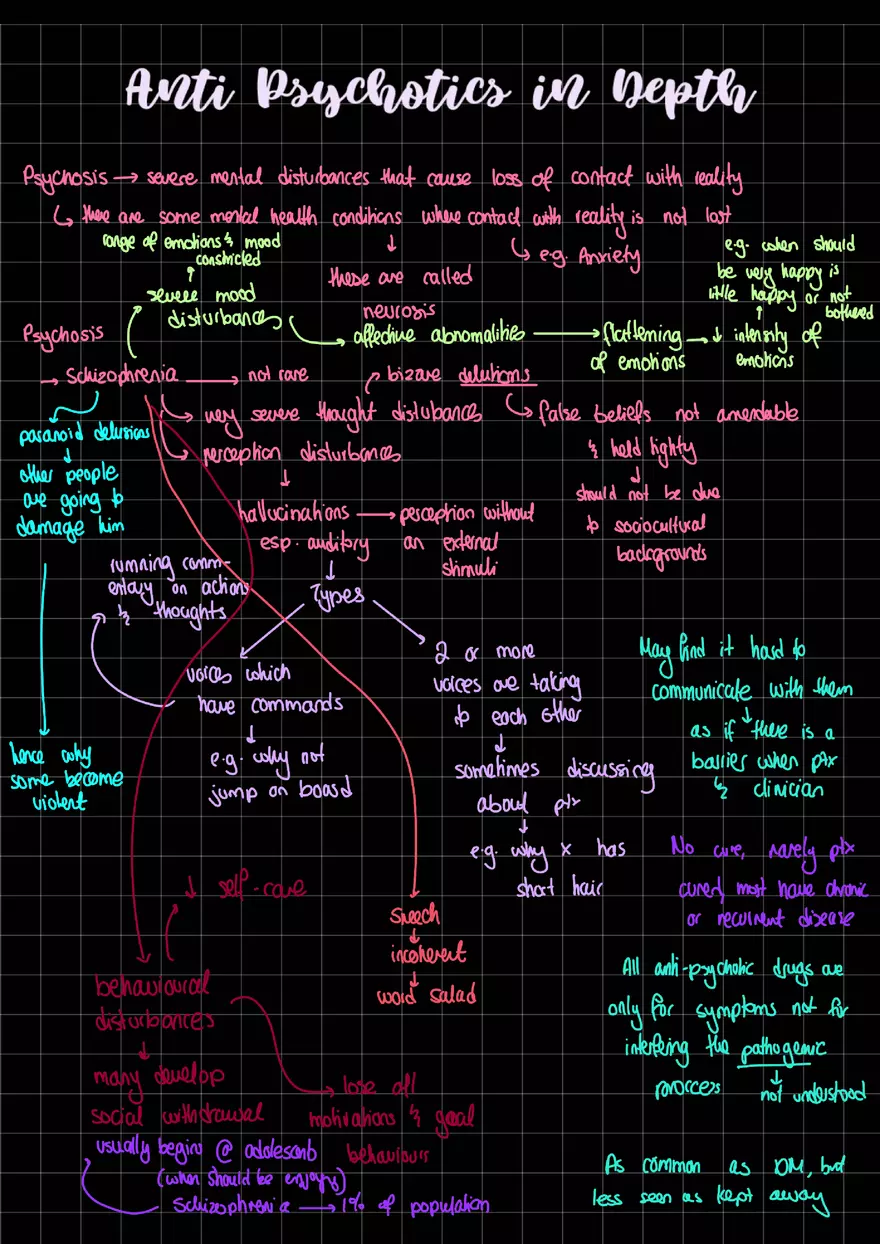 Anti Psychotics in Depth
Psychosis → severe mental disturbances that cause loss of contact with reality
↳ there are some mental health conditions where contact with reality is not lost
↳ e.g. Anxiety
these are called
neurosis
range of emotions & mood
constricted
severe mood
disturbances
affective abnormalities → flattening
of emotions
→ ↓ intensity of
emotions
e.g. when should
be very happy is
little happy or not
bothered
Psychosis
→ Schizophrenia → not rare
very severe thought distubance
bizare delutions
false beliefs not amendable
& held tighty
should not be due
to sociocultural
backgrounds
perception disturbances
hallucinations → perception without
esp. auditory
an external
stimuli
Types
paranoid delusions
other people
are going to
damage him
hence why
some become
violent
running comm-
entary on actions
& thoughts
voices which
have commands
e.g. why not
jump on board
2 or more
voices are taking
to each other
sometimes discussing
about ptx
e.g. why x has
short hair
May find it hard to
communicate with them
as if there is a
barrier when ptx
& clinician
No cure, rarely ptx
cured, most have chronic
or recurrent disease
↓ self-care
speech
incoherent
word salad
behavioural
disturbances
many develop
social withdrawal
lose all
motivations & goal
behaviour
All anti-psychotic drugs are
only for symptoms not for
interfering the pathogenic
proccess
not understood
usually begins @
(when should be enjoying)
Schizophrenia → 1% of population
As common as DM, but
less seen as kept away